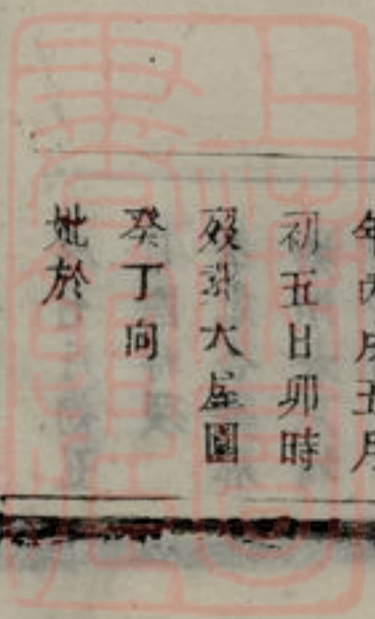 年丙戌五月
初五日卯時
歿葬大屋園
癸丁向
妣於